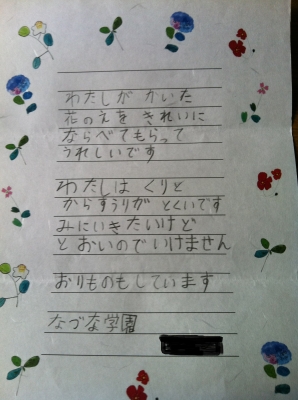 わたしが かいた
花のえを きれいに
ならべてもらって
うれしいです
わたしは くりと
からすうりが とくいです
みにいきたいけど
とおいので いけません
おりものもしています
なづな学園